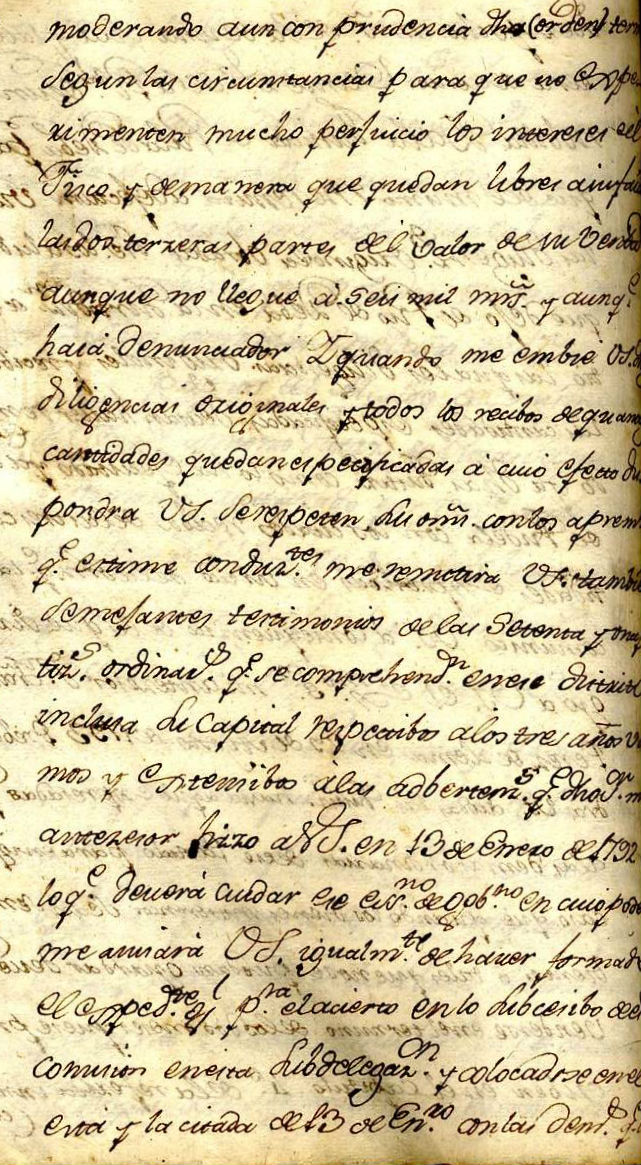 moderando aun con prudencia dha (orden)
segun las circunstancias para que no expe
rimenten mucho perjuicio los intereses del
Fisco y demanera que quedan libres
las dos terzeras partes del valor de su
aunque no llegue á seis mil mrs. y aunq.e
haia denunciador. Y quando me embie VS.
diligencias originales y todos los recibos de
cantidades quedan especificadas á cuio efecto dis
pondra VS. se respeten sus con los aprem
q.e estime conduz.tes me remitira VS. tambi
semejantes testimonios de las setenta y
ordinar.s q.e se comprehend.n en ese distrito
inclusa su Capital respectibos a los tres años
mos y extensibos á las adbertenz.s q.e dho S.r m
antezesor hizo a VS. en 13 de Enero de 1792
lo q.e deverá cuidar ese ess.no de gob.no en cuio pode
me avisará VS. igualm.te de haver formado
el esped.te p.ra el acierto en lo subcesibo de
comision en esta subdelegaz.on y colocadose en el
esta y la citada de 13 de En.ro con las dem.s q.e